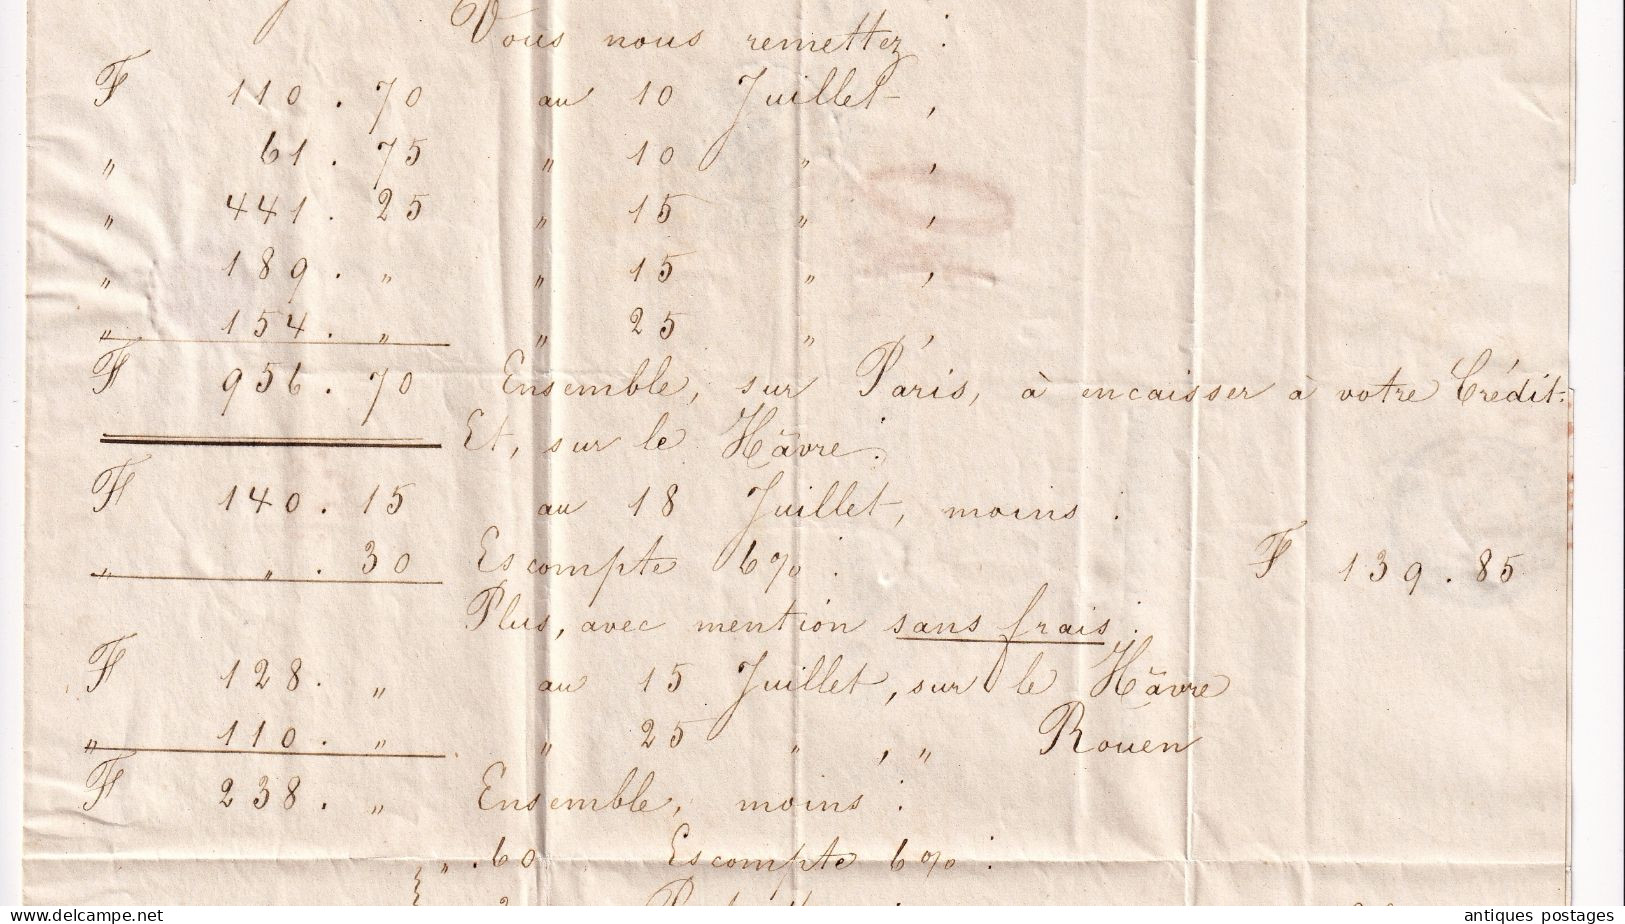 Vous nous remettez :
F 110 . 70 au 10 Juillet ,
" 61 . 75 " 10 " ,
" 441 . 25 " 15 " ,
" 189 . " " 15 " ,
" 154 . " " 25 " ,
F 956 . 70 Ensemble, sur Paris, à encaisser à votre Crédit.
Et, sur le Hâvre :
F 140 . 15 au 18 Juillet, moins :
" " . 30 Escompte 6% : F 139 . 85
Plus, avec mention sans frais :
F 128 . " au 15 Juillet, sur le Hâvre
" 110 . " " 25 " , " Rouen
F 238 . " Ensemble, moins :
" . 60 Escompte 6% :
delcampe.net
antiques postages